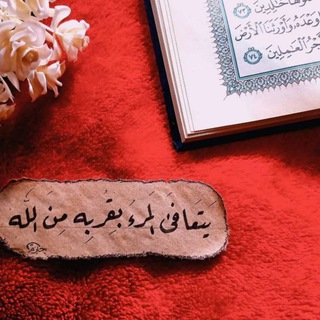 خَالِدِينَ ٧٣
وَعْدَهُ وَأَوْرَثَنَا الْأَرْضَ
أَجْرُ الْعَامِلِينَ ٧٤
يَتَعافى المرءَ بقُربِهِ مِنَ اللّه